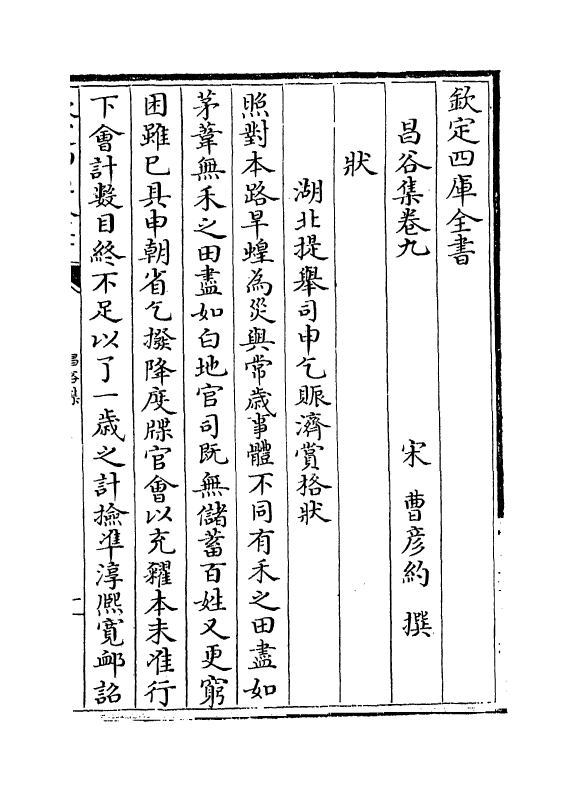 欽定四庫全書
昌谷集卷九
宋 曹彦約 撰
狀
湖北提舉司申乞賑濟賞格狀
照對本路旱蝗為災與常歳事體不同有禾之田盡如
茅葦無禾之田盡如白地官司既無儲蓄百姓又更窮
困雖已具申朝省乞撥降度牒官會以充糴本未准行
下會計數目終不足以了一歳之計撿准淳熈寛䘏詔
昌谷集